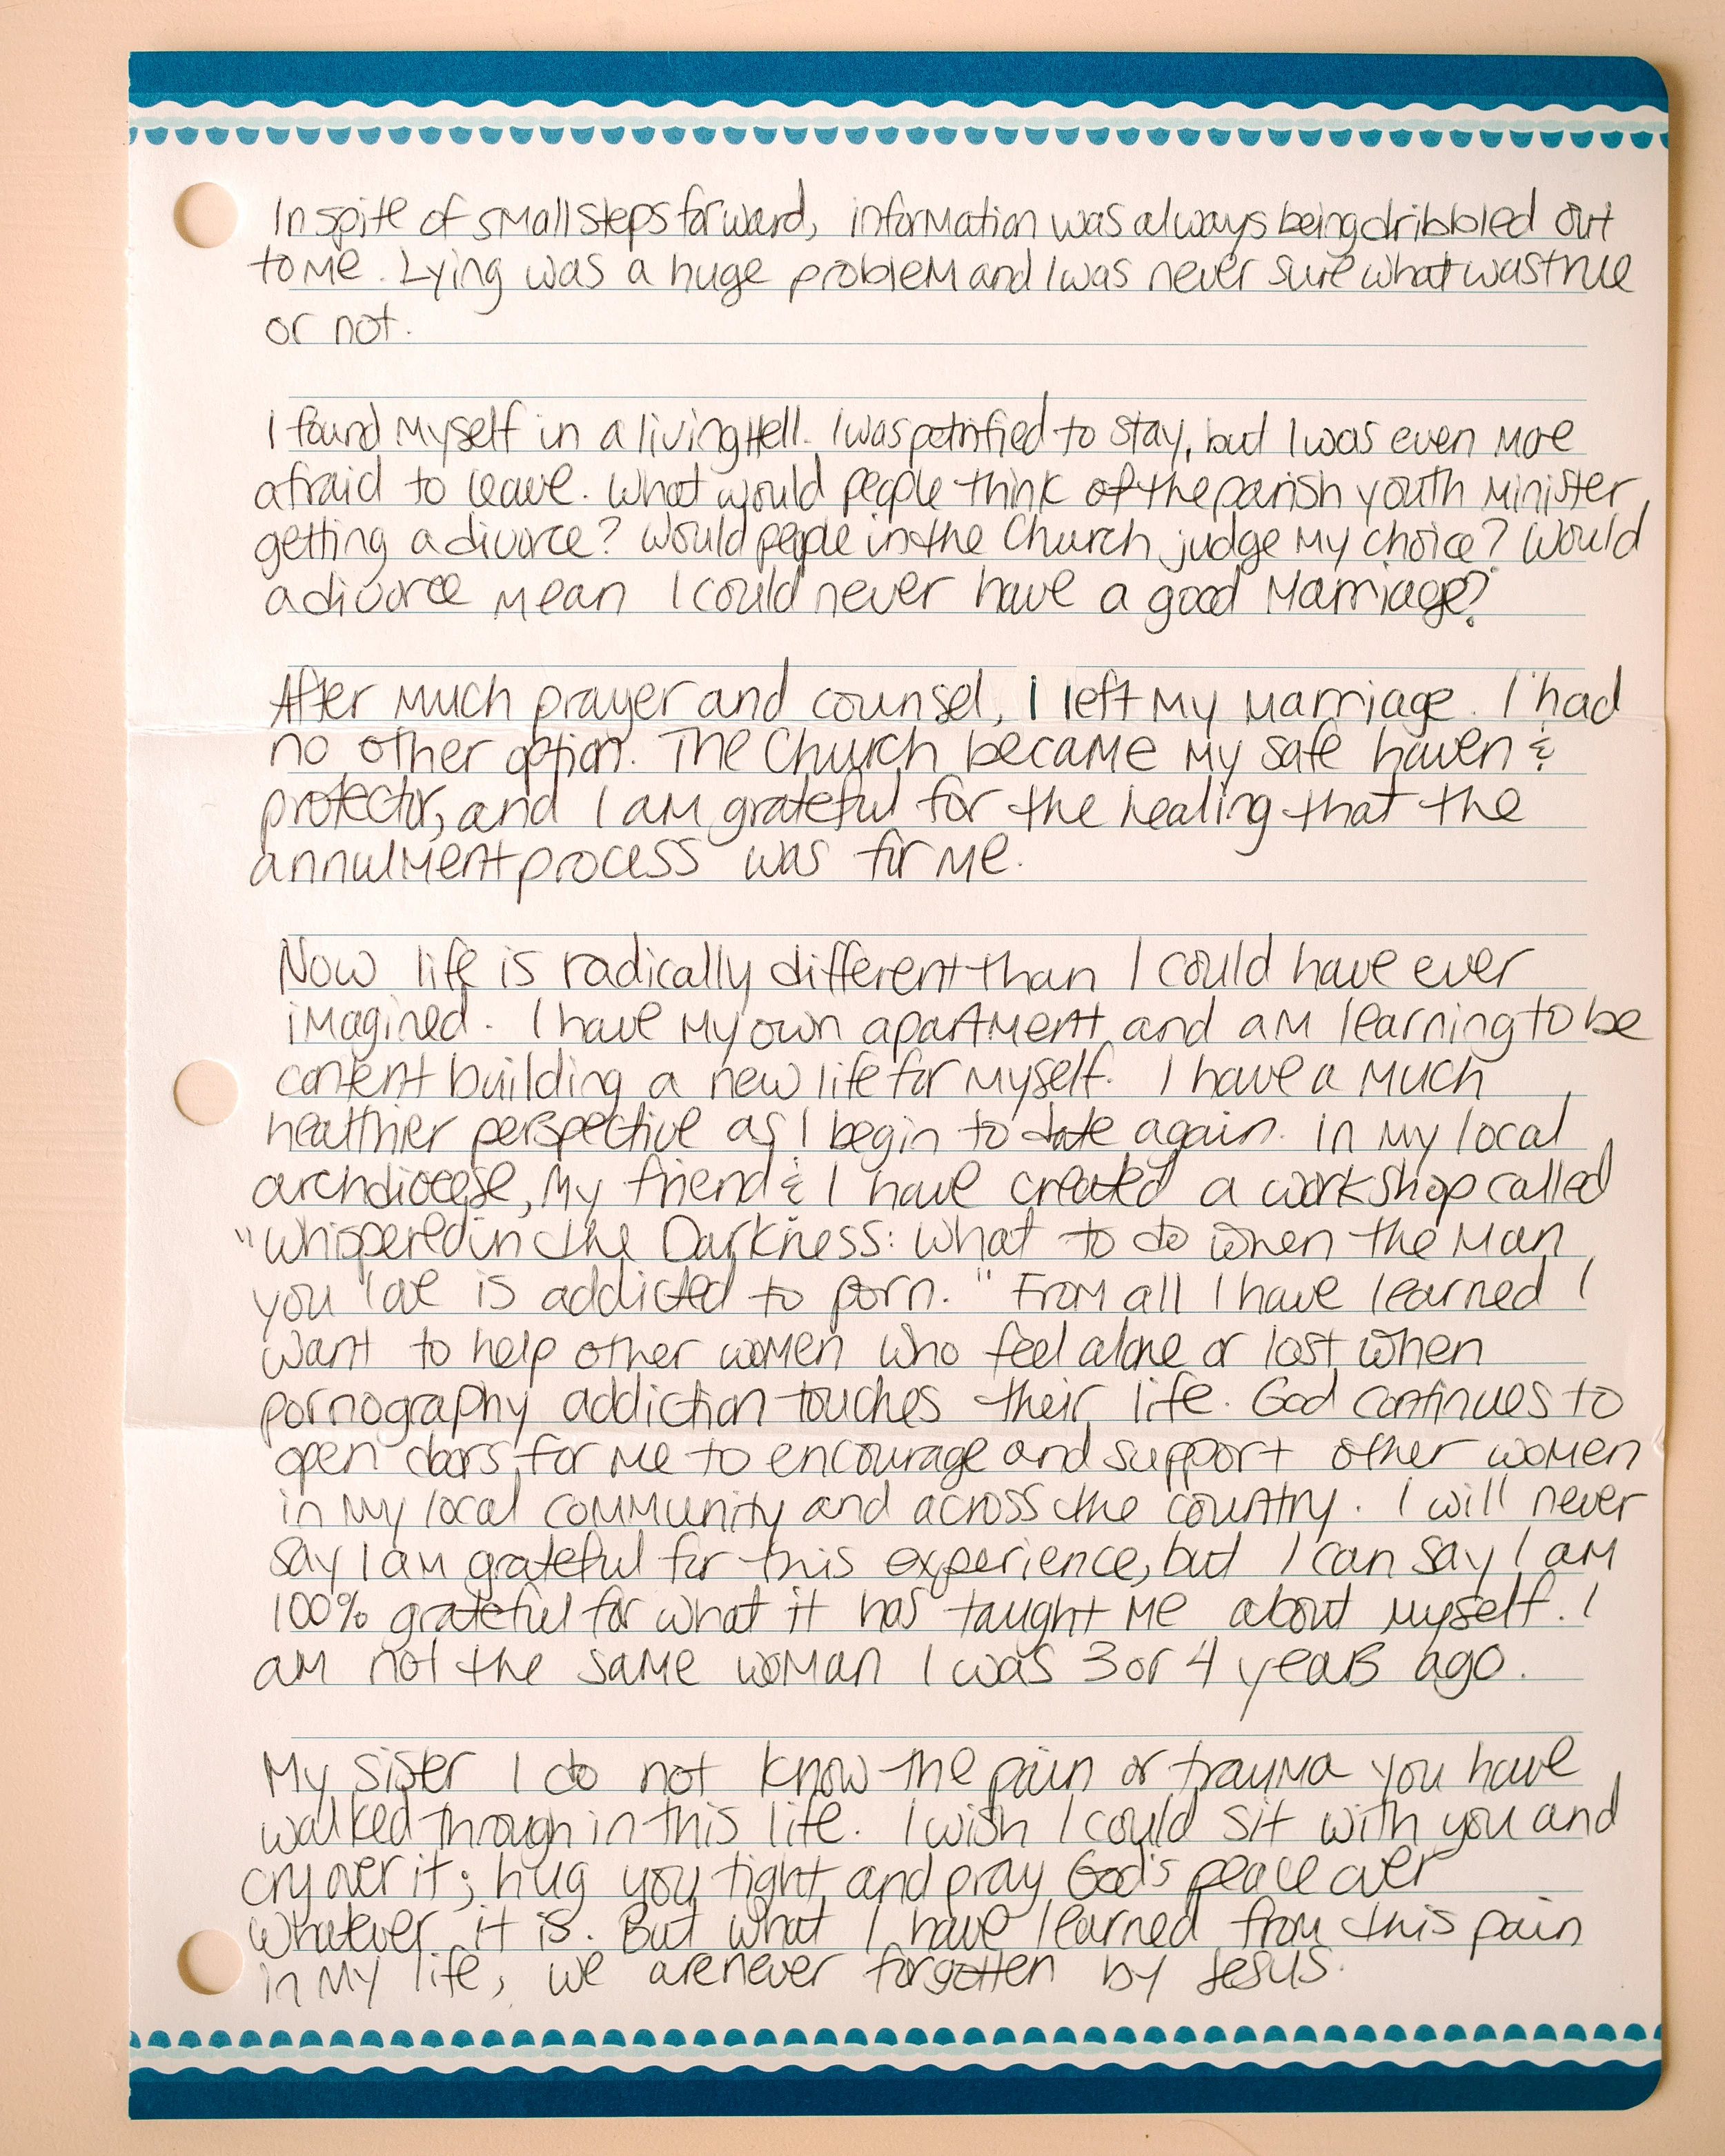 In spite of small steps forward, information was always being dribbled out
to me. Lying was a huge problem and I was never sure what was true
or not.
I found myself in a living Hell. I was petrified to stay, but I was even more
afraid to leave. What would people think of the parish youth minister
getting a divorce? Would people in the Church judge my choice? Would
a divorce mean I could never have a good Marriage?
After much prayer and counsel, I left my marriage. I had
no other option. The Church became my safe haven &
protector, and I am grateful for the healing that the
annulment process was for me.
Now life is radically different than I could have ever
imagined. I have my own apartment and am learning to be
content building a new life for myself. I have a much
healthier perspective as I begin to date again. In my local
archdiocese, my friend & I have created a workshop called
"Whispered in the Darkness: What to do when the Man
you love is addicted to porn." From all I have learned I
want to help other women who feel alone or lost when
pornography addiction touches their life. God continues to
open doors for me to encourage and support other women
in my local community and across the country. I will never
say I am grateful for this experience, but I can say I am
100% grateful for what it has taught me about myself. I
am not the same woman I was 3 or 4 years ago.
My sister I do not know the pain or trauma you have
walked through in this life. I wish I could sit with you and
cry over it; hug you tight and pray God's peace over
whatever it is. But what I have learned from this pain
in my life, we are never forgotten by Jesus.